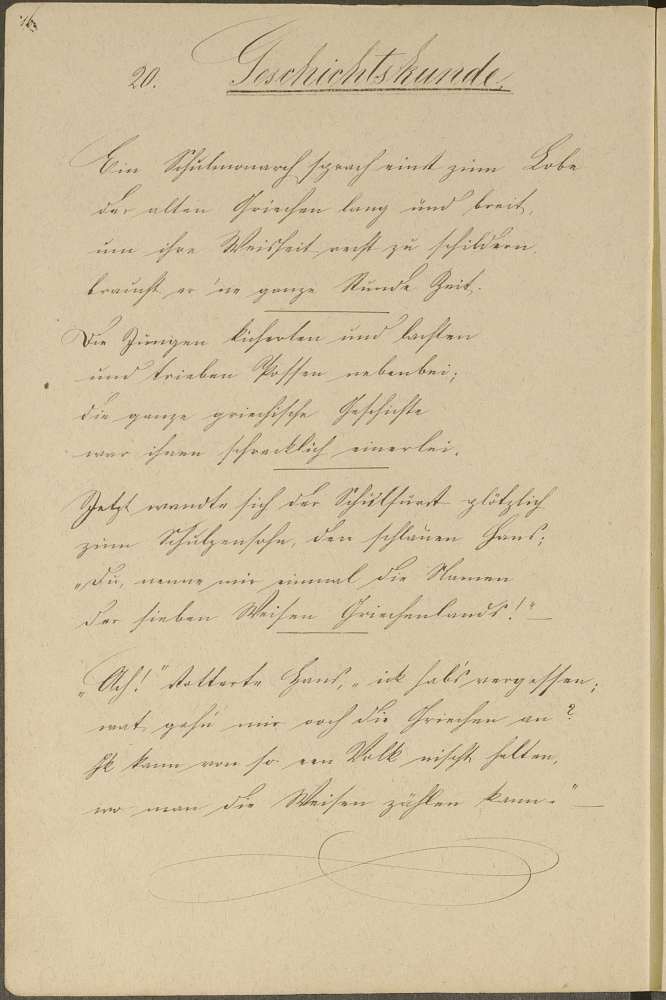 20. Geschichtskunde.
Ein Schulmonarch sprach einst zum Lobe
der alten Griechen lang und breit,
um ihre Weisheit recht zu schildern,
braucht er 'ne ganze Stunde Zeit.
Die Jungen kicherten und lachten
und trieben Possen nebenbei;
die ganze griechische Geschichte
war ihnen schrecklich einerlei.
Jetzt wandte sich der Schulfürst plötzlich
zum Schulzensohn, den schlauen Hans;
„Du, nenne mir einmal die Namen
der sieben Weisen Griechenlands!"
„Ach!" stotterte Hans, „ick hab's vergessen;
wat gehn mir och die Griechen an?
Ik kann von so een Volk nischt halten,
wo man die Weisen zählen kann."